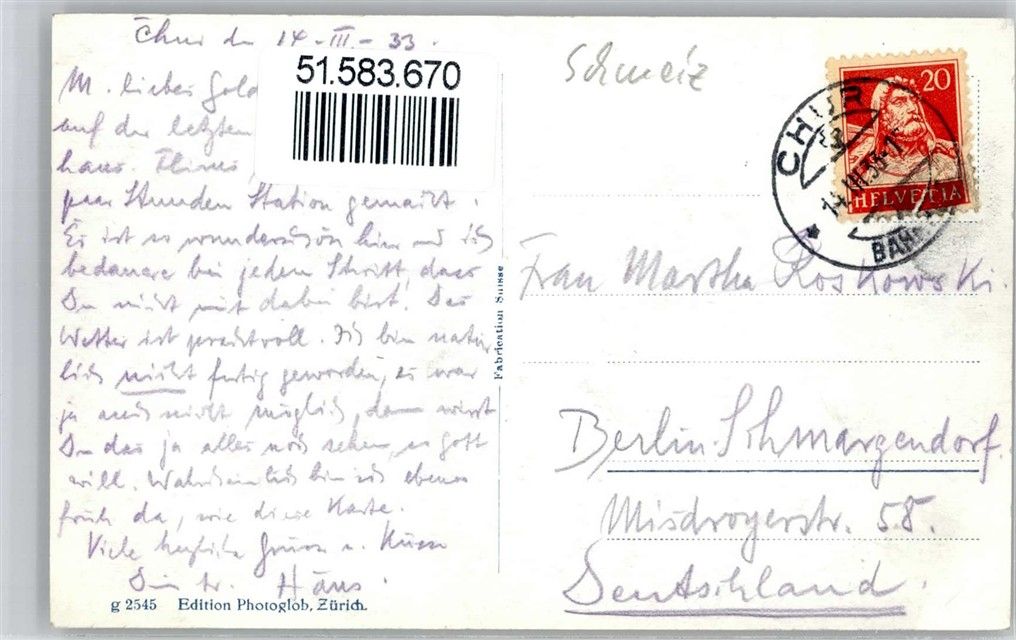 Chur den 14-III-33.
M. liebes Gold
auf der letzten
haus. Flims,
paar Stunden Station gemacht.
Es ist so wunderschön hier und ich
bedauere bei jedem Schritt, dass
Du nicht mit dabei bist! Das
Wetter ist prachtvoll. Ich bin natür
lich nicht fertig geworden, es war
ja auch nicht möglich, dann wirst
Du das ja alles noch sehen, so Gott
will. Wahrscheinlich bin ich ebenso
früh da, wie diese Karte.
Viele herzliche Grüsse u. Küsse
Dein tr. Hans.
g 2545 Edition Photoglob, Zürich.
51.583.670
Fabrication Suisse
Schweiz
20
HELVETIA
CHUR
14.III.33
BAH
Frau Martha Roskowski.
Berlin-Schmargendorf.
Misdroyerstr. 58.
Deutschland.